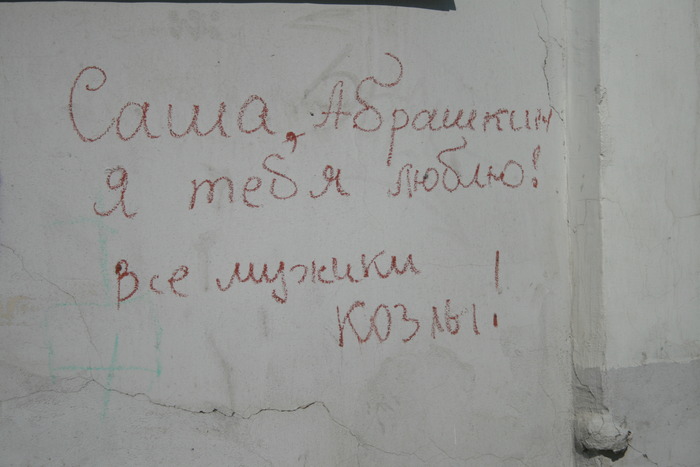 Саша, Абрашкин
Я тебя люблю!
Все мужики
козлы!